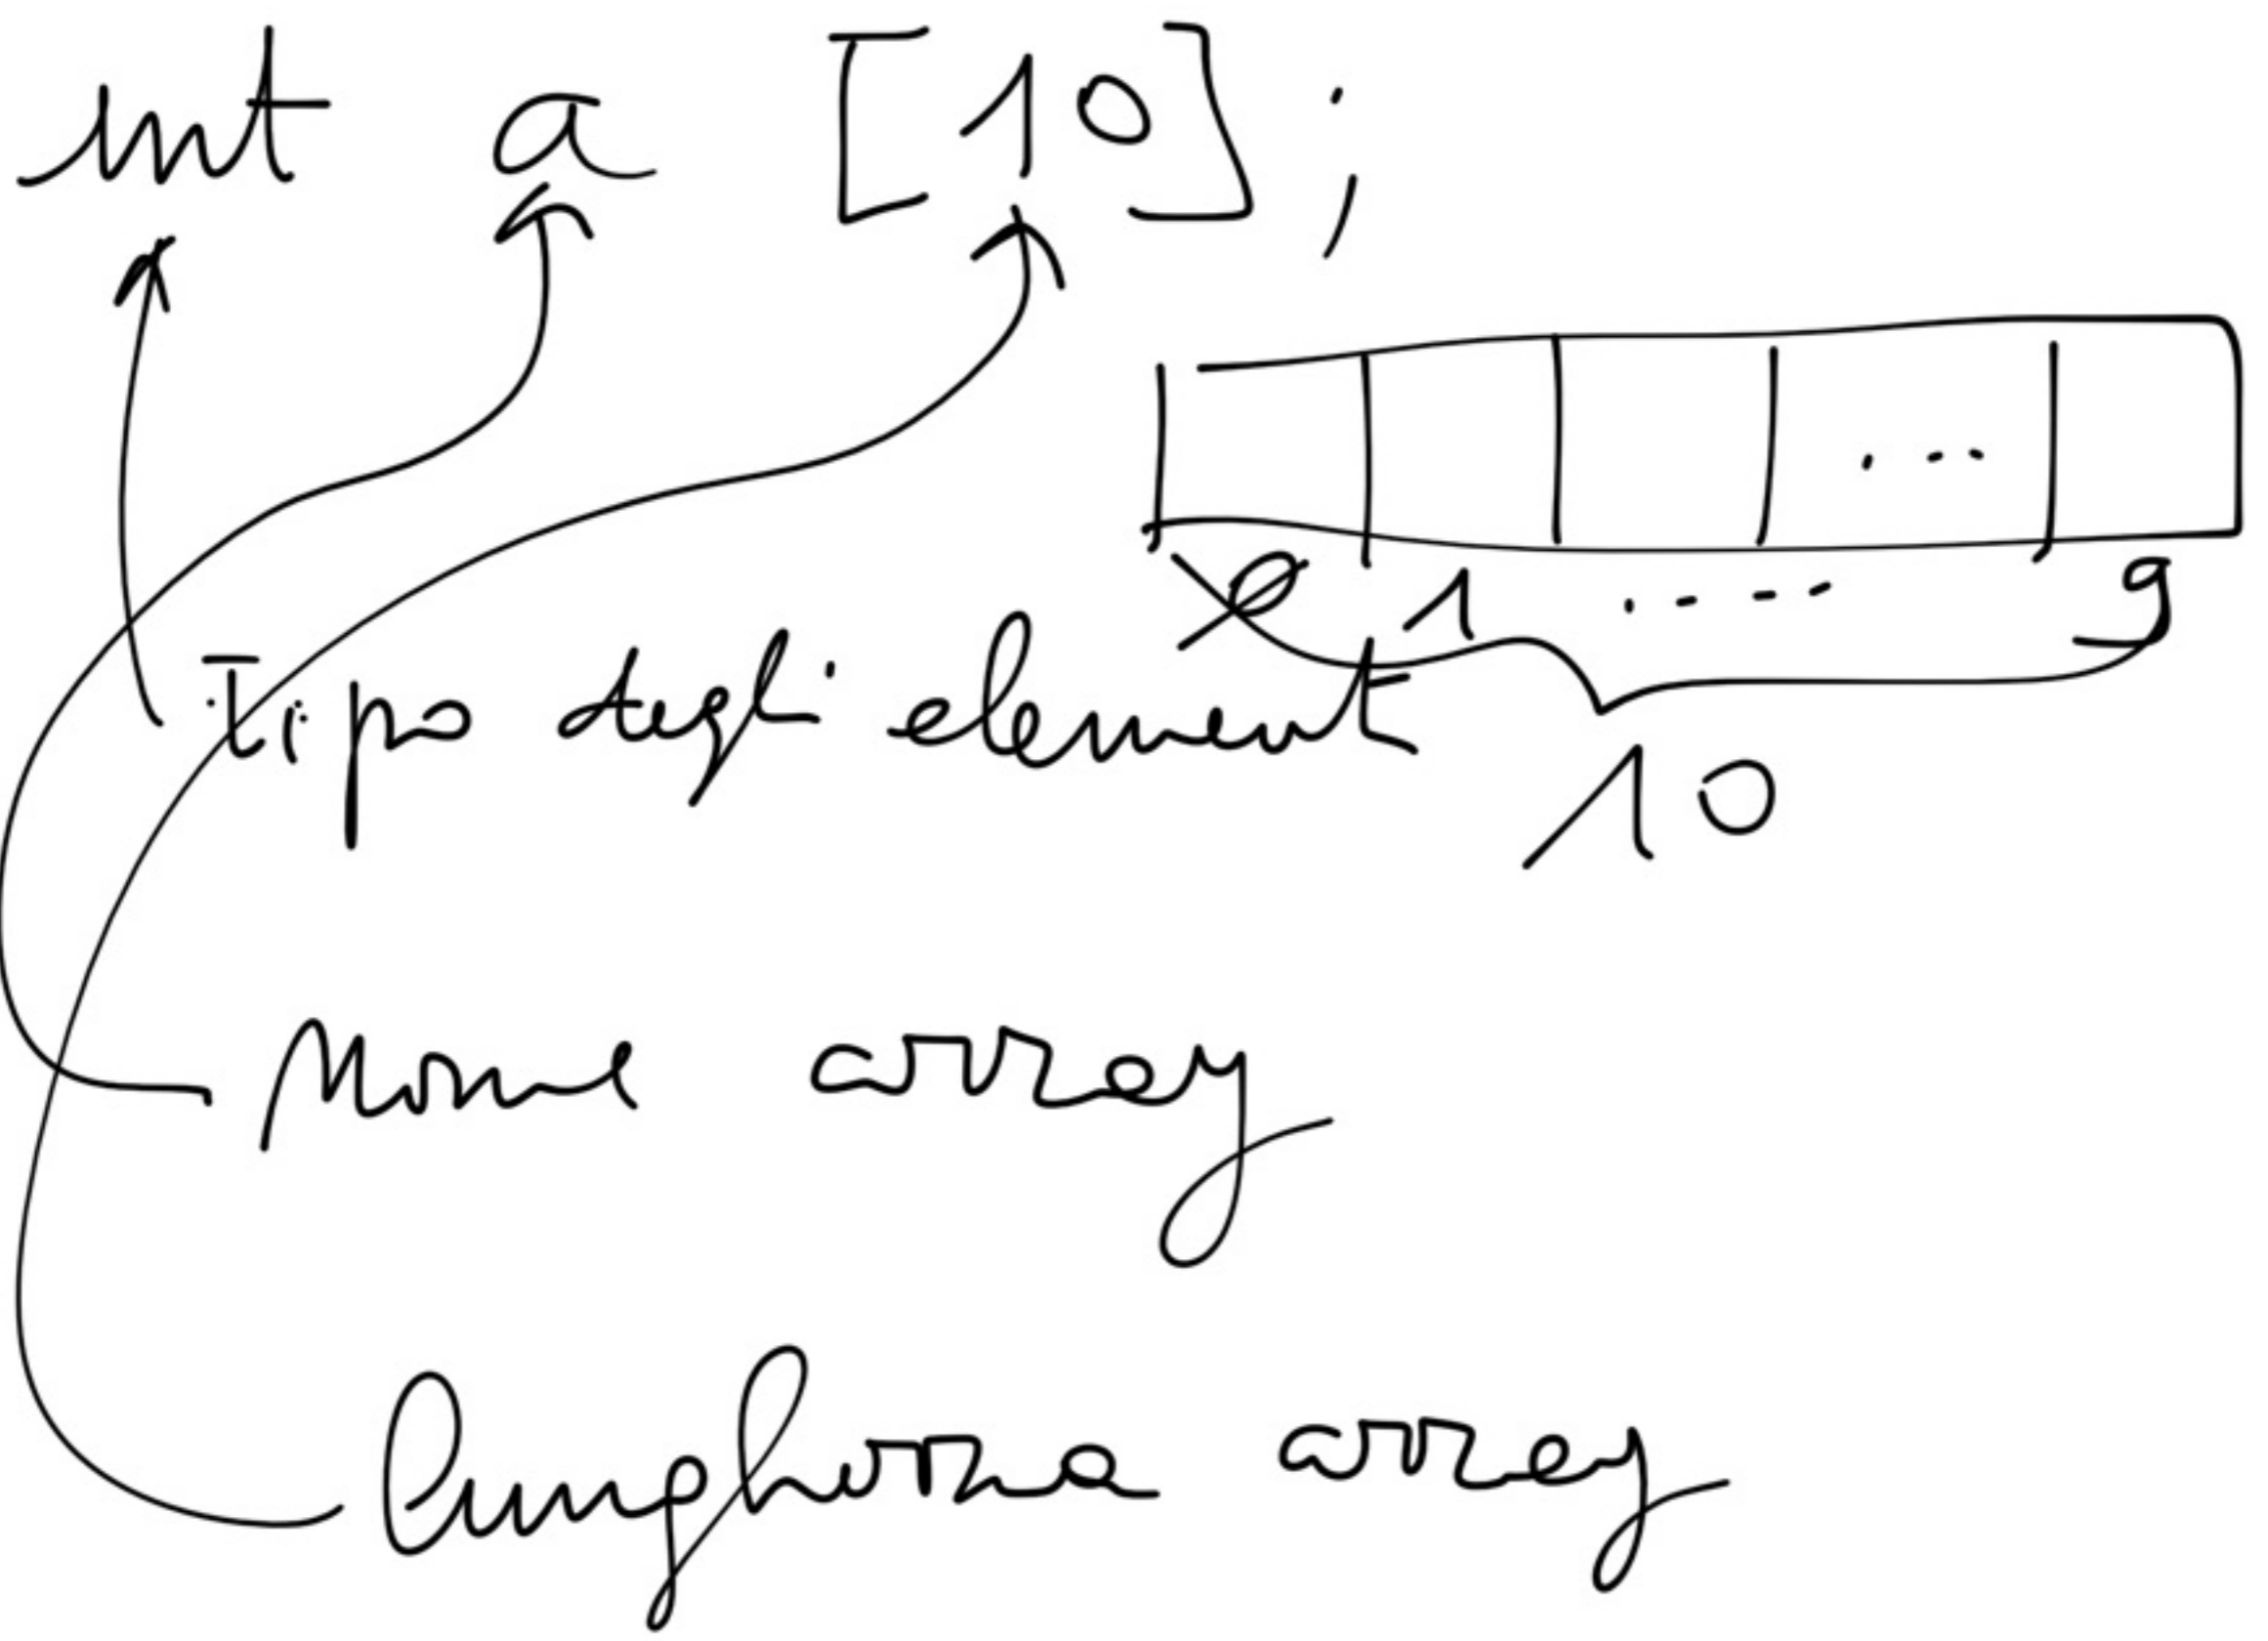 int a [10];
0 1 .... 9
Tipo degli element
10
Nome array
lunghezza array